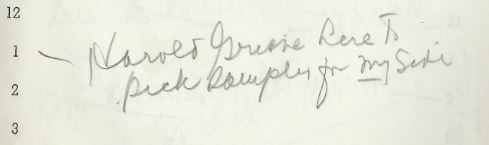 12
1 - Harold Greene here to
2 pick samples for my side
3